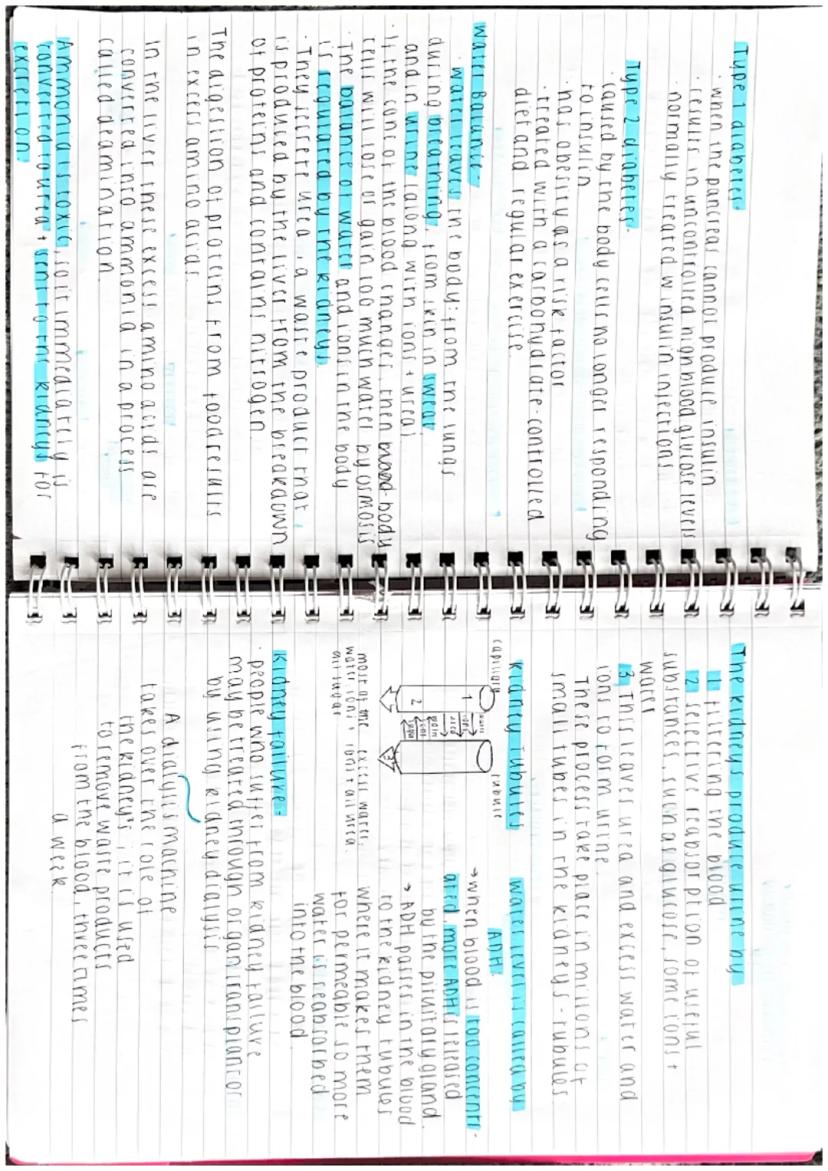 Type 1 diabetes
· when the pancreas cannot produce insulin
· results in uncontrolled high blood glucose levels
· normally treated w insulin injections
Type 2 diabetes.
· caused by the body cells no longer responding
to insulin
· has obesity as a risk factor
· treated with a carbohydrate-controlled
diet and regular exercise
Water Balance
· water leaves the body: from the lungs
during breathing, from skin in sweat
and in urine (along with ions + urea)
· If the conc of the blood changes, then body
cells will lose or gain too much water by osmosis
· The balance of water and ions in the body
is regulated by the kidneys
· They secrete urea, a waste product that
is produced by the liver from the breakdown
of proteins and contains nitrogen
The digestion of proteins from food results
in excess amino acids.
In the liver these excess amino acids are
converted into ammonia in a process
called deamination.
Ammonia is toxic, so it immediately is
converted to urea + sent to the kidneys for
excretion.
The kidneys produce urine by
1 filtering the blood
2 selective reabsorption of useful
substances, such as glucose, some ions +
water
3 This leaves urea and excess water and
ions to form urine.
These process take place in millions of
small tubes in the kidneys - tubules
kidney tubules
capillary
tubule
1
2
3
most of the
water, ions +
all sugar
excess water,
ions + all urea.
water level is called by
ADH
→ when blood is too concentr-
ated, more ADH is released
by the pituitary gland.
→ ADH passes in the blood
to the kidney tubules
where it makes them
for permeable so more
water is reabsorbed
into the blood
kidney failure.
· people who suffer from kidney failure
may be treated through organ transplant or
by using kidney dialysis
A dialysis machine
takes over the role of
the kidney's; it is used
to remove waste products
from the blood, three times
a week